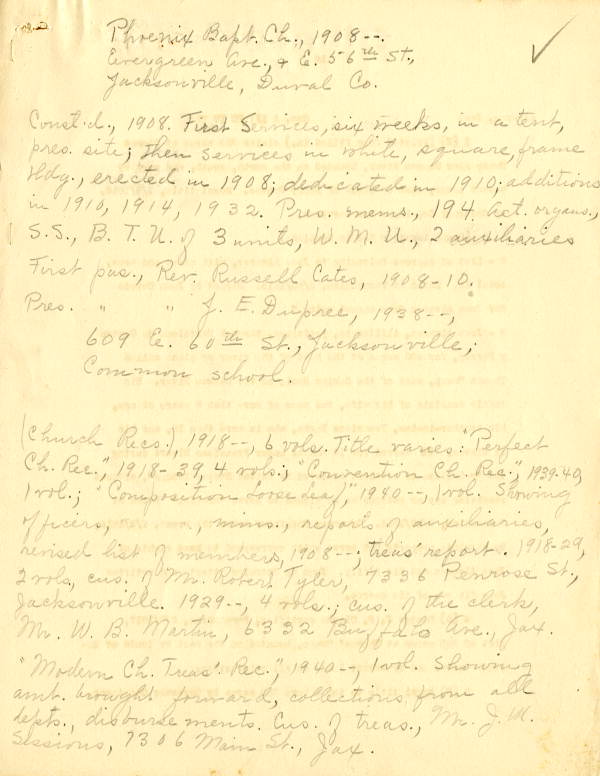 Phoenix Bapt. Ch., 1908--.
Evergreen Ave., & E. 56th St.,
Jacksonville, Duval Co.
Const'd., 1908. First Services, six weeks, in a tent,
pres. site; then services in white, square, frame
bldg., erected in 1908; dedicated in 1910; additions
in 1910, 1914, 1932. Pres. mems., 194. Act. organs.,
S.S., B. T. U. of 3 units, W. M. U., 2 auxiliaries
First pas., Rev. Russell Cates, 1908-10.
Pres. " " J. E. Dupree, 1938--,
609 E. 60th St., Jacksonville;
Common school.
(Church Recs.), 1918--, 6 vols. Title varies: "Perfect
Ch. Rec.", 1918-39, 4 vols.; "Convention Ch. Rec.", 1939-40,
1 vol.; "Composition Loose Leaf," 1940--, 1 vol. Showing
officers, mins., reports of auxiliaries,
revised list of members, 1908--; treas' report. 1918-29,
2 vols, cus. of Mr. Robert Tyler, 7336 Penrose St.,
Jacksonville. 1929--, 4 vols.; cus. of the clerk,
Mr. W. B. Martin, 6332 Buffalo Ave., Jax.
"Modern Ch. Treas'. Rec.", 1940--, 1 vol. Showing
amt. brought forward, collections from all
depts., disbursements. Cus. of treas., Mr. J. M.
Sessions, 7306 Main St., Jax.